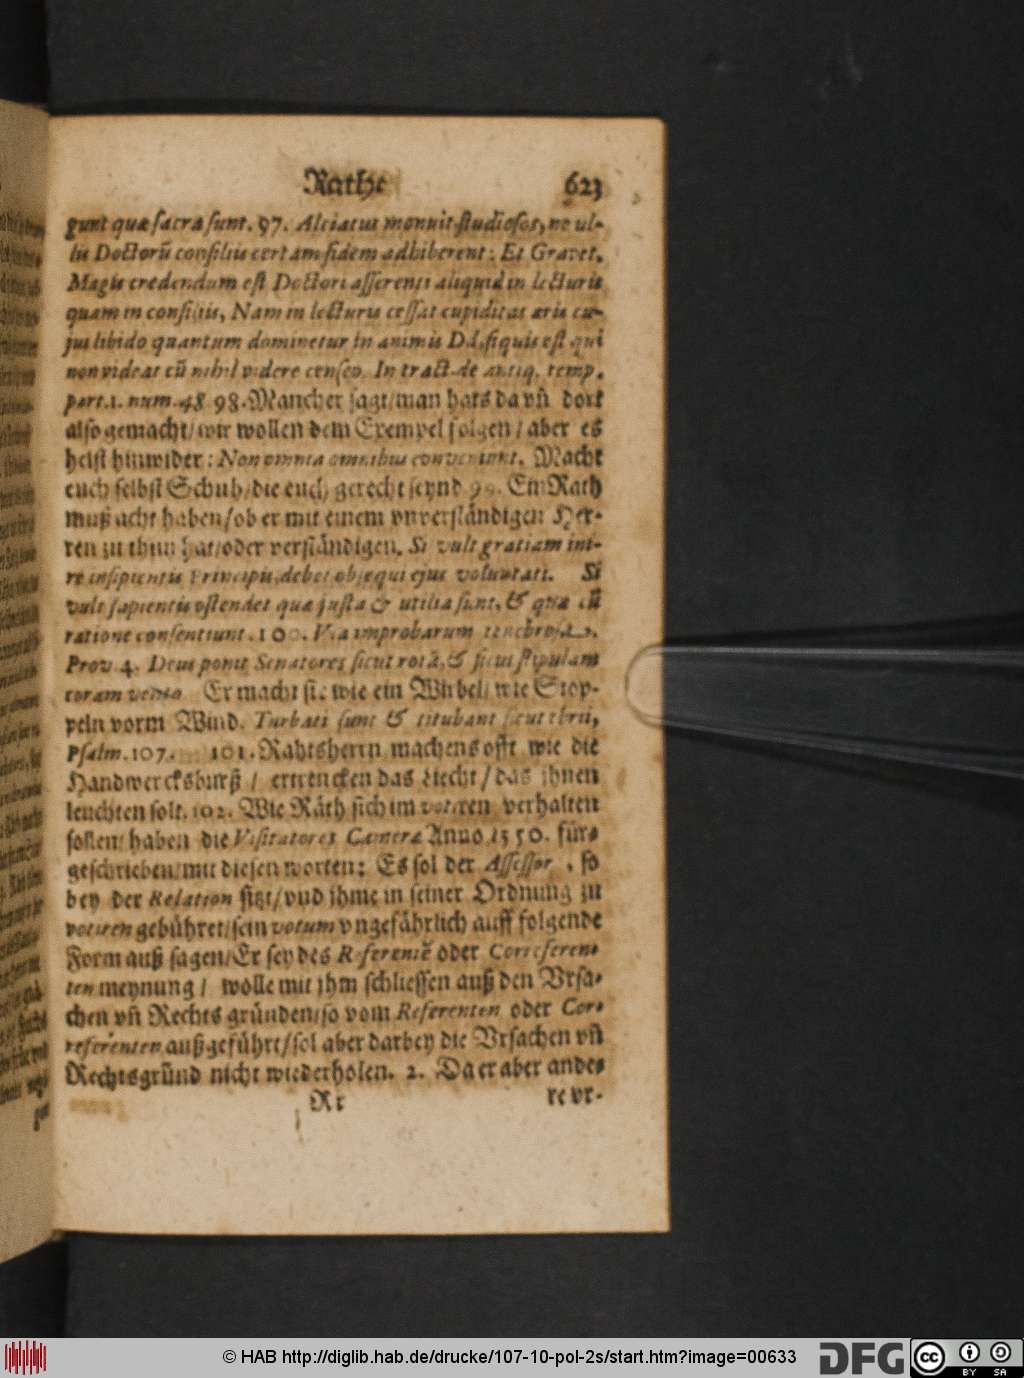 Rathe 623
gunt quæ sacra sunt. 97. Alciatus monuit studiosos, ne ul-
lis Doctorũ consiliis certam fidem adhiberent: Et Gravet.
Magis credendum est Doctori asserenti aliquid in lecturis
quam in consiliis, Nam in lecturis cessat cupiditas æris cu-
jus libido quantum dominetur in animis Dd. siquis est qui
non videat cũ nihil videre censeo. In tract. de antiq. temp.
part. 1. num. 48 98. Mancher sagt/man hats da vñ dort
also gemacht/wir wollen dem Exempel folgen/aber es
heist hinwider: Non omnia omnibus conveniunt. Macht
euch selbst Schuh/die euch gerecht seynd 99. Ein Rath
muß acht haben/ob er mit einem vnverständigen Her-
ren zu thun hat/oder verständigen. Si vult gratiam ini-
re insipientis Principis, debet obsequi ejus voluntati. Si
vult sapientis ostendet quæ justa & utilia sunt, & quæ cũ
ratione consentiunt. 100. Via improbarum tenebrosa.
Prov. 4. Deus ponit Senatores sicut rotã, & sicut stipulam
coram vento. Er macht sie wie ein Wirbel/wie Stop-
peln vorm Wind. Turbati sunt & titubant sicut ebrii,
Psalm. 107. 101. Rahtsherrn machens offt wie die
Handwercksburß/ ertrencken das Liecht/das ihnen
leuchten solt. 102. Wie Räth sich im votiren verhalten
sollen/haben die Visitatores Cameræ Anno 1550. für-
geschrieben/mit diesen worten: Es sol der Assessor, so
bey der Relation sitzt/vnd ihme in seiner Ordnung zu
votiren gebühret/sein votum vngefährlich auff folgende
Form auß sagen/Er sey des Referentẽ oder Correferen-
ten meynung/ wolle mit ihm schliessen auß den Vrsa-
chen vñ Rechts gründen/so vom Referenten oder Cor-
referenten außgeführt/sol aber darbey die Vrsachen vñ
Rechtsgründ nicht wiederholen. 2. Da er aber ande-
Rr re vr-
© HAB http://diglib.hab.de/drucke/107-10-pol-2s/start.htm?image=00633
DFG
cc
BY SA